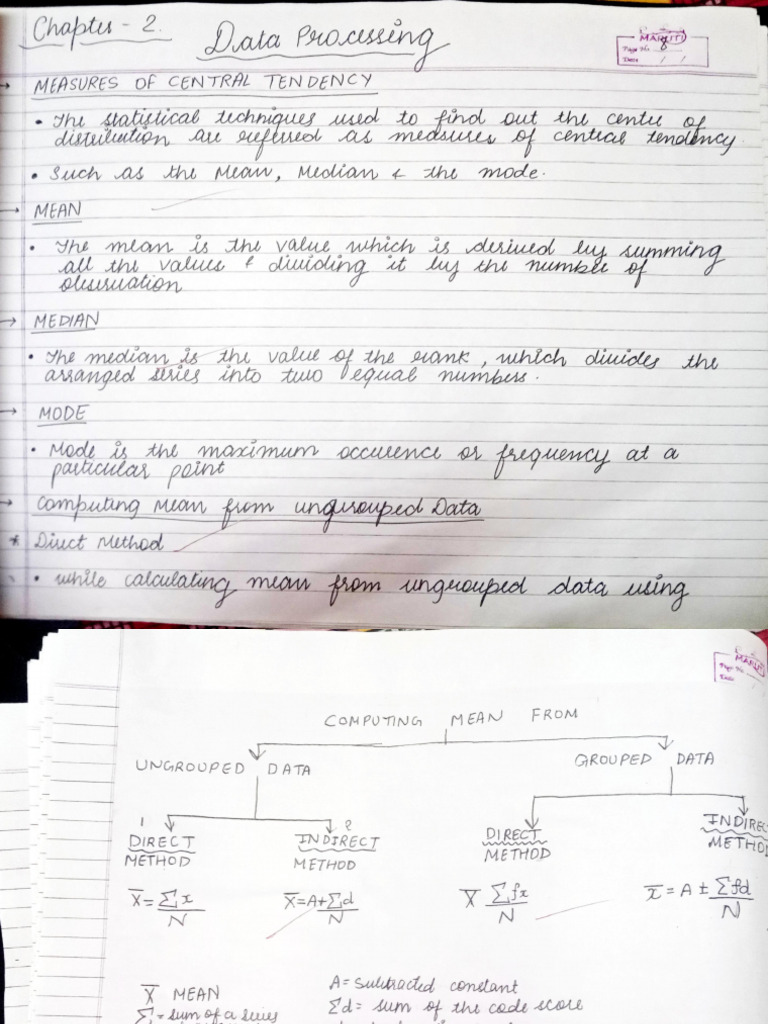 Chapter - 2.
Data Processing
MARUTI
Page No. 8
Date / /
→ MEASURES OF CENTRAL TENDENCY
• The statistical techniques used to find out the centre of
distribution are referred as measures of central tendency.
• Such as the Mean, Median & the mode.
→ MEAN
• The mean is the value which is derived by summing
all the values & dividing it by the number of
observation
→ MEDIAN
• The median is the value of the rank, which divides the
arranged series into two equal numbers.
→ MODE
• Mode is the maximum occurence or frequency at a
particular point
→ Computing Mean from ungrouped Data
* Direct Method
• while calculating mean from ungrouped data using
MARUTI
Page No.
Date
COMPUTING MEAN FROM
UNGROUPED DATA
GROUPED DATA
1 DIRECT METHOD
2 INDIRECT METHOD
DIRECT METHOD
INDIREC METHO
X̄ = Σx / N
X̄ = A + Σd / N
X̄ Σfx / N
x̄ = A ± Σfd / N
X̄ MEAN
A = Subtracted constant
Σ = sum of a series
Σd = sum of the code score